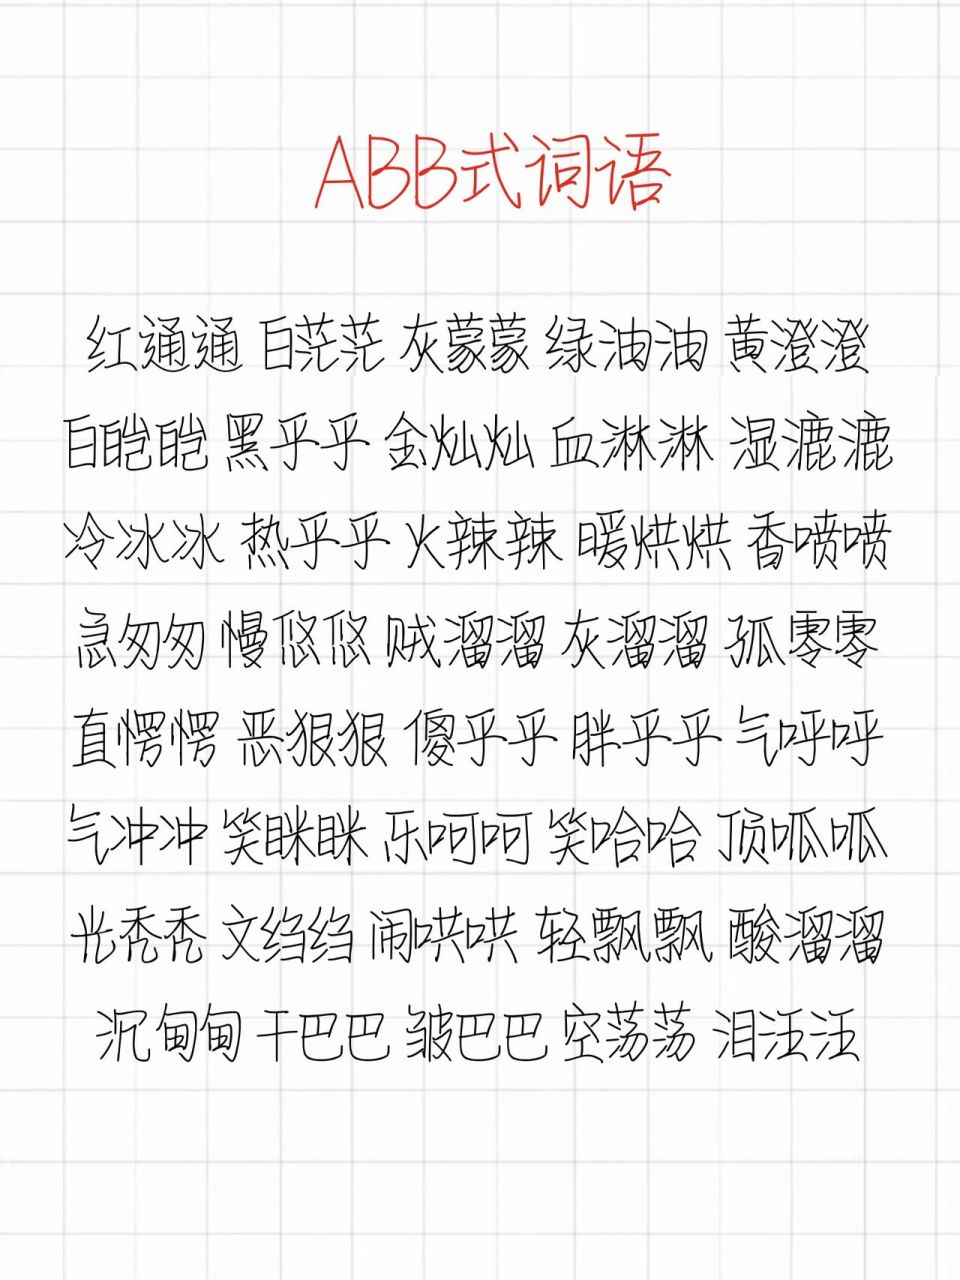 ABB式词语
红通通 白茫茫 灰蒙蒙 绿油油 黄澄澄
白皑皑 黑乎乎 金灿灿 血淋淋 湿漉漉
冷冰冰 热乎乎 火辣辣 暖烘烘 香喷喷
急匆匆 慢悠悠 贼溜溜 灰溜溜 孤零零
直愣愣 恶狠狠 傻乎乎 胖乎乎 气呼呼
气冲冲 笑眯眯 乐呵呵 笑哈哈 顶呱呱
光秃秃 文绉绉 闹哄哄 轻飘飘 酸溜溜
沉甸甸 干巴巴 皱巴巴 空荡荡 泪汪汪